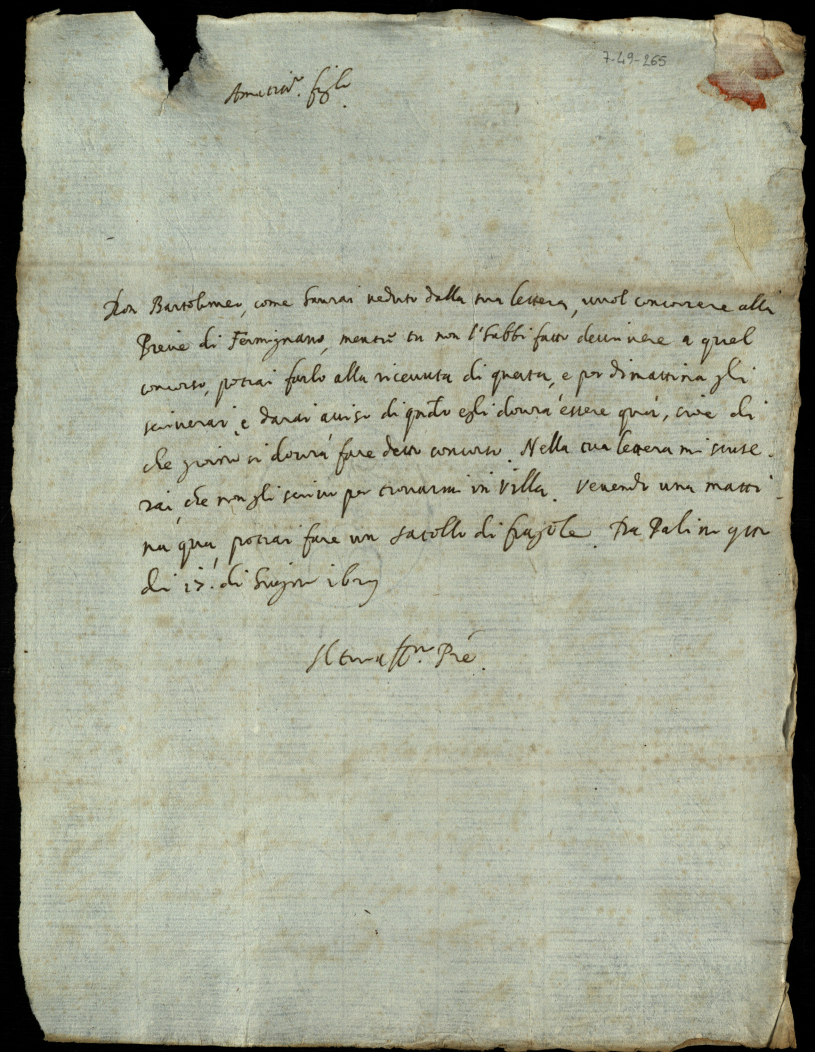 7-49-265
Amatiss.º figlo
Don Bartolomeo, come haurai ueduto dalla sua lettera, uuol concorrere alla
Pieue di Fermignano, mentre tu non l'habbi fatto descriuere a quel
concorso, potrai farlo alla riceuuta di questa, e poi dimattina gli
scriuerai, e darai auiso di qndo egli dourà essere quà, cioè il dì
che giorno si dourà fare detto concorso. Nella tua lettera mi scuse-
rai, che non gli scriuo per trouarmi in Villa. Venendo una matti-
na qua, potrai fare un satollo di fragole. Da Palino
di 17. di Giugno
Il tuo aff.mo Pre.